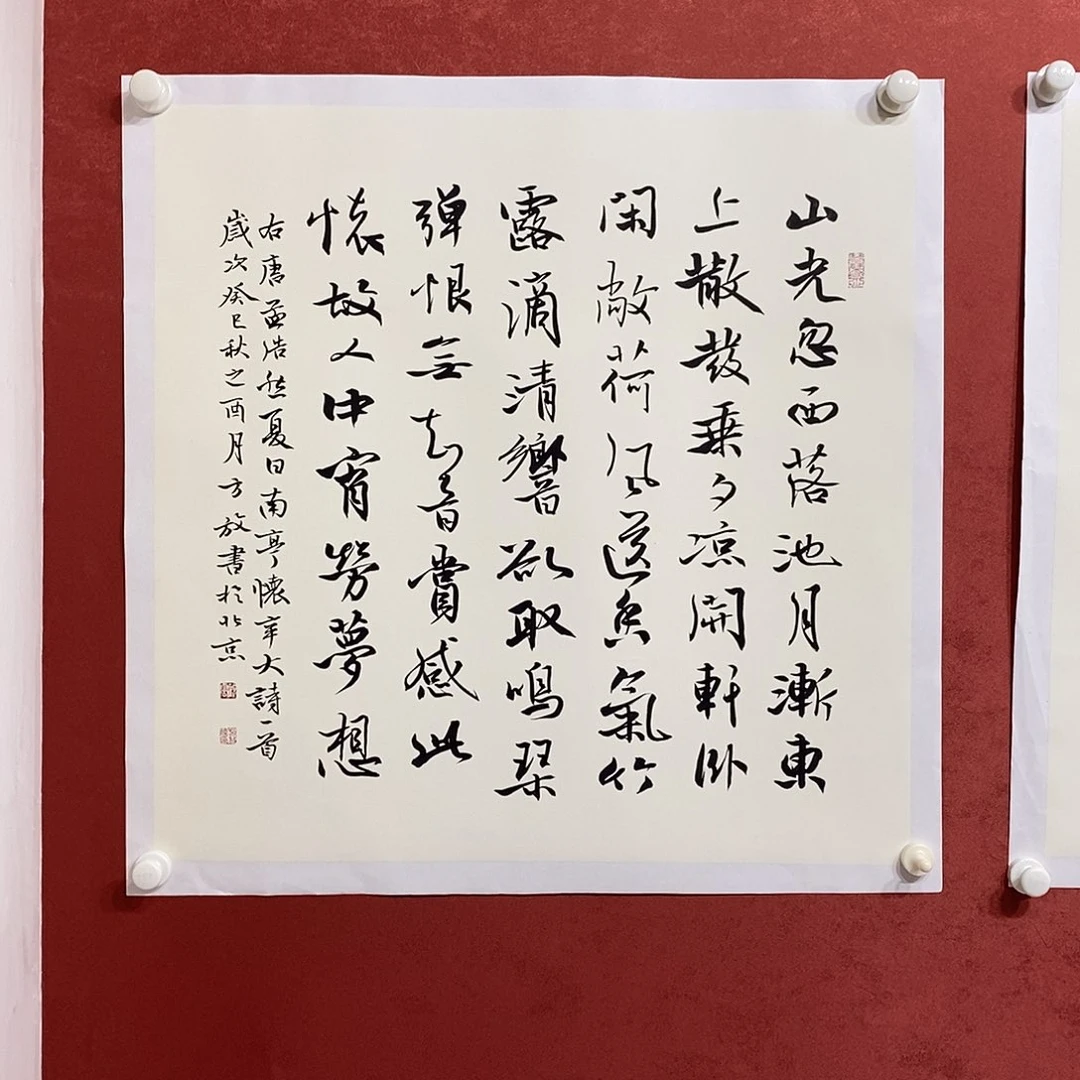 山光忽西落池月漸東
上散发乗夕凉開軒卧
閑敞荷风送香氣竹
露滴清響欲取鳴琹
弹恨无知音賞感此
懐故人中宵勞夢想
右唐孟浩然夏日南亭懷辛大詩一首
歲次癸巳秋之酉月方放書於北京